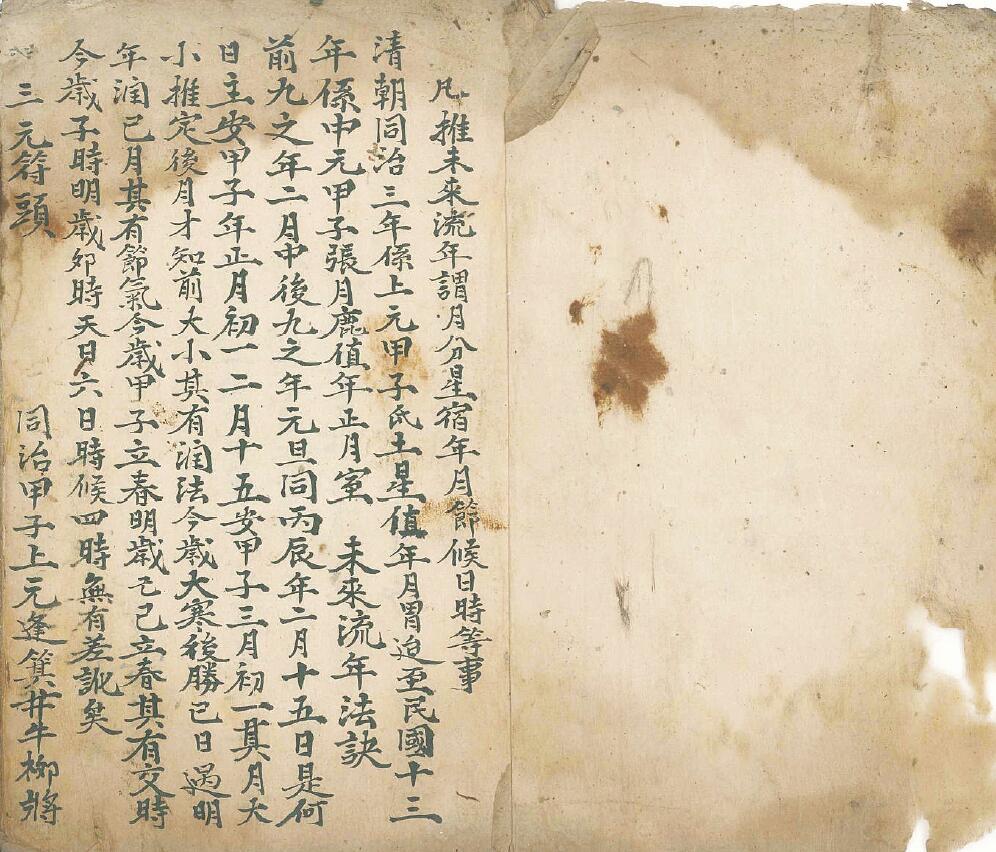 凡推未來流年謂月分星宿年月節候日時等事
清朝同治三年係上元甲子氐土星值年月胃迨至民國十三
年係中元甲子張月鹿值年正月室　未來流年法訣
前九之年二月中後九之年元旦同丙辰年二月十五日是何
日主安甲子年正月初一二月十五安甲子三月初一其月大
小推定後月才知前大小其有润法今歲大寒後勝已日過明
年润已月其有節氣今歲甲子立春明歲己巳立春其有交時
今歲子時明歲夘時天日六日時候四時無有差訛矣
三元符頭　同治甲子上元逢箕井牛柳將